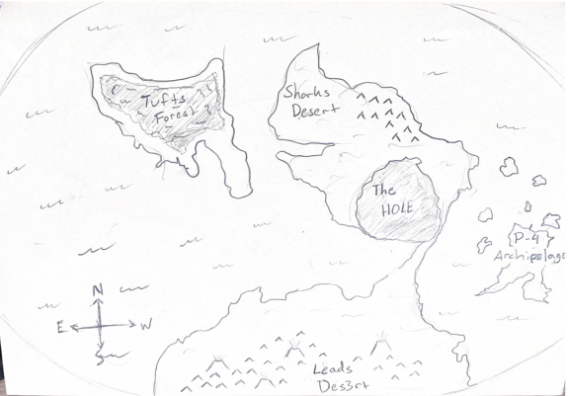 Tufts
Forest
Sharks
Desert
The
HOLE
P-4
Archipelago
N
E
W
S
Leads
Des3rt